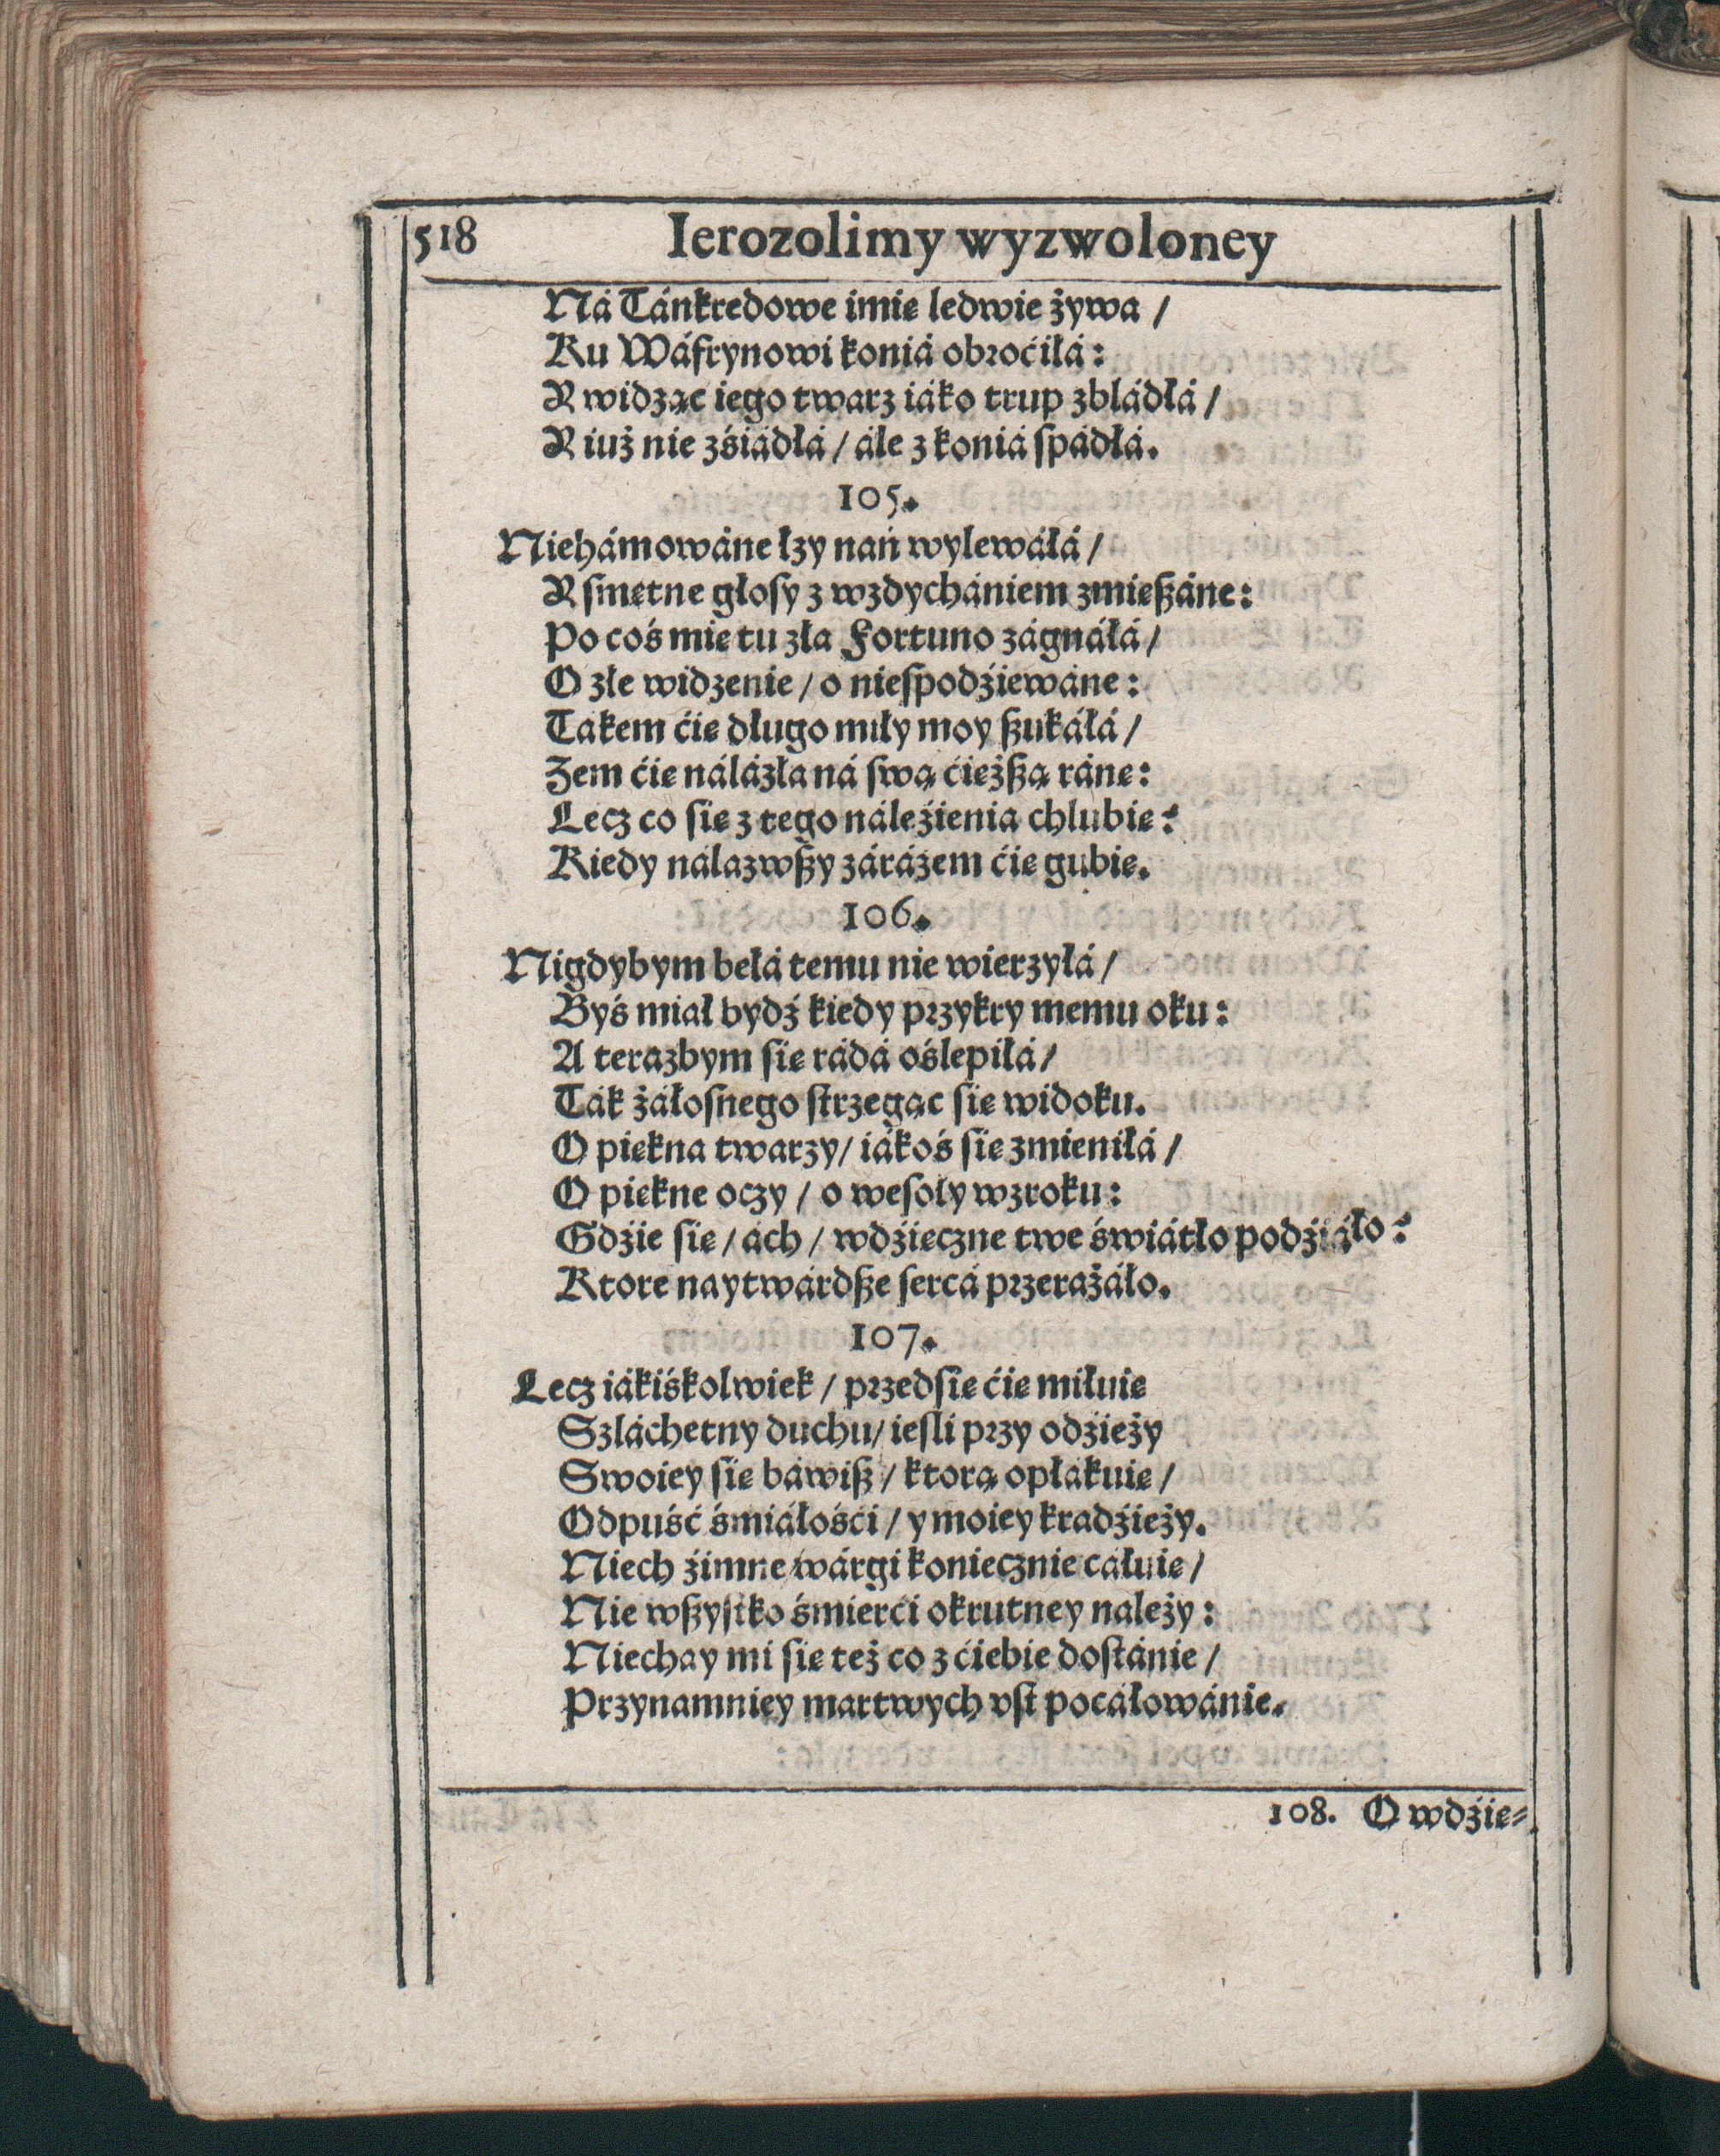 518 Ierozolimy wyzwoloney
Ná Tánkredowe imię ledwie żywa /
Ku Wáfrynowi koniá obroćiłá:
Y widząc iego twarz iáko trup zbládłá /
Y iuż nie zśiádłá / ále z koniá spádłá.
105.
Niehámowáne łzy nań wylewáłá /
Y smętne głosy z wzdychániem zmieszáne:
Po coś mię tu zła Fortuno zágnáłá /
O złe widzenie / o niespodźiewáne:
Tákem ćię długo miły moy szukáłá /
Zem ćię nálázła ná swą ćięższą ránę:
Lecz co się z tego náleźienia chlubię?
Kiedy nálazwszy zárázem ćię gubię.
106.
Nigdybym bełá temu nie wierzyłá /
Byś miał bydź kiedy przykry memu oku:
A terazbym się rádá oślepiłá /
Ták żáłosnego strzegąc się widoku.
O piękna twarzy / iákoś się zmieniłá /
O piękne oczy / o wesoły wzroku:
Gdźie się / ách / wdźięczne twe świátło podźiáło?
Ktore naytwárdsze sercá przerażáło.
107.
Lecz iákiśkolwiek / przedsię ćię miłuię
Szláchetny duchu / iesli przy odźieży
Swoiey się báwisz / ktorą opłákuię /
Odpuść śmiáłośći / y moiey kradźieży.
Niech źimne wárgi koniecznie cáłuię /
Nie wszystko śmierći okrutney należy:
Niechay mi się też co z ćiebie dostánie /
Przynamniey martwych vst pocáłowánie.
108. O wdźię-